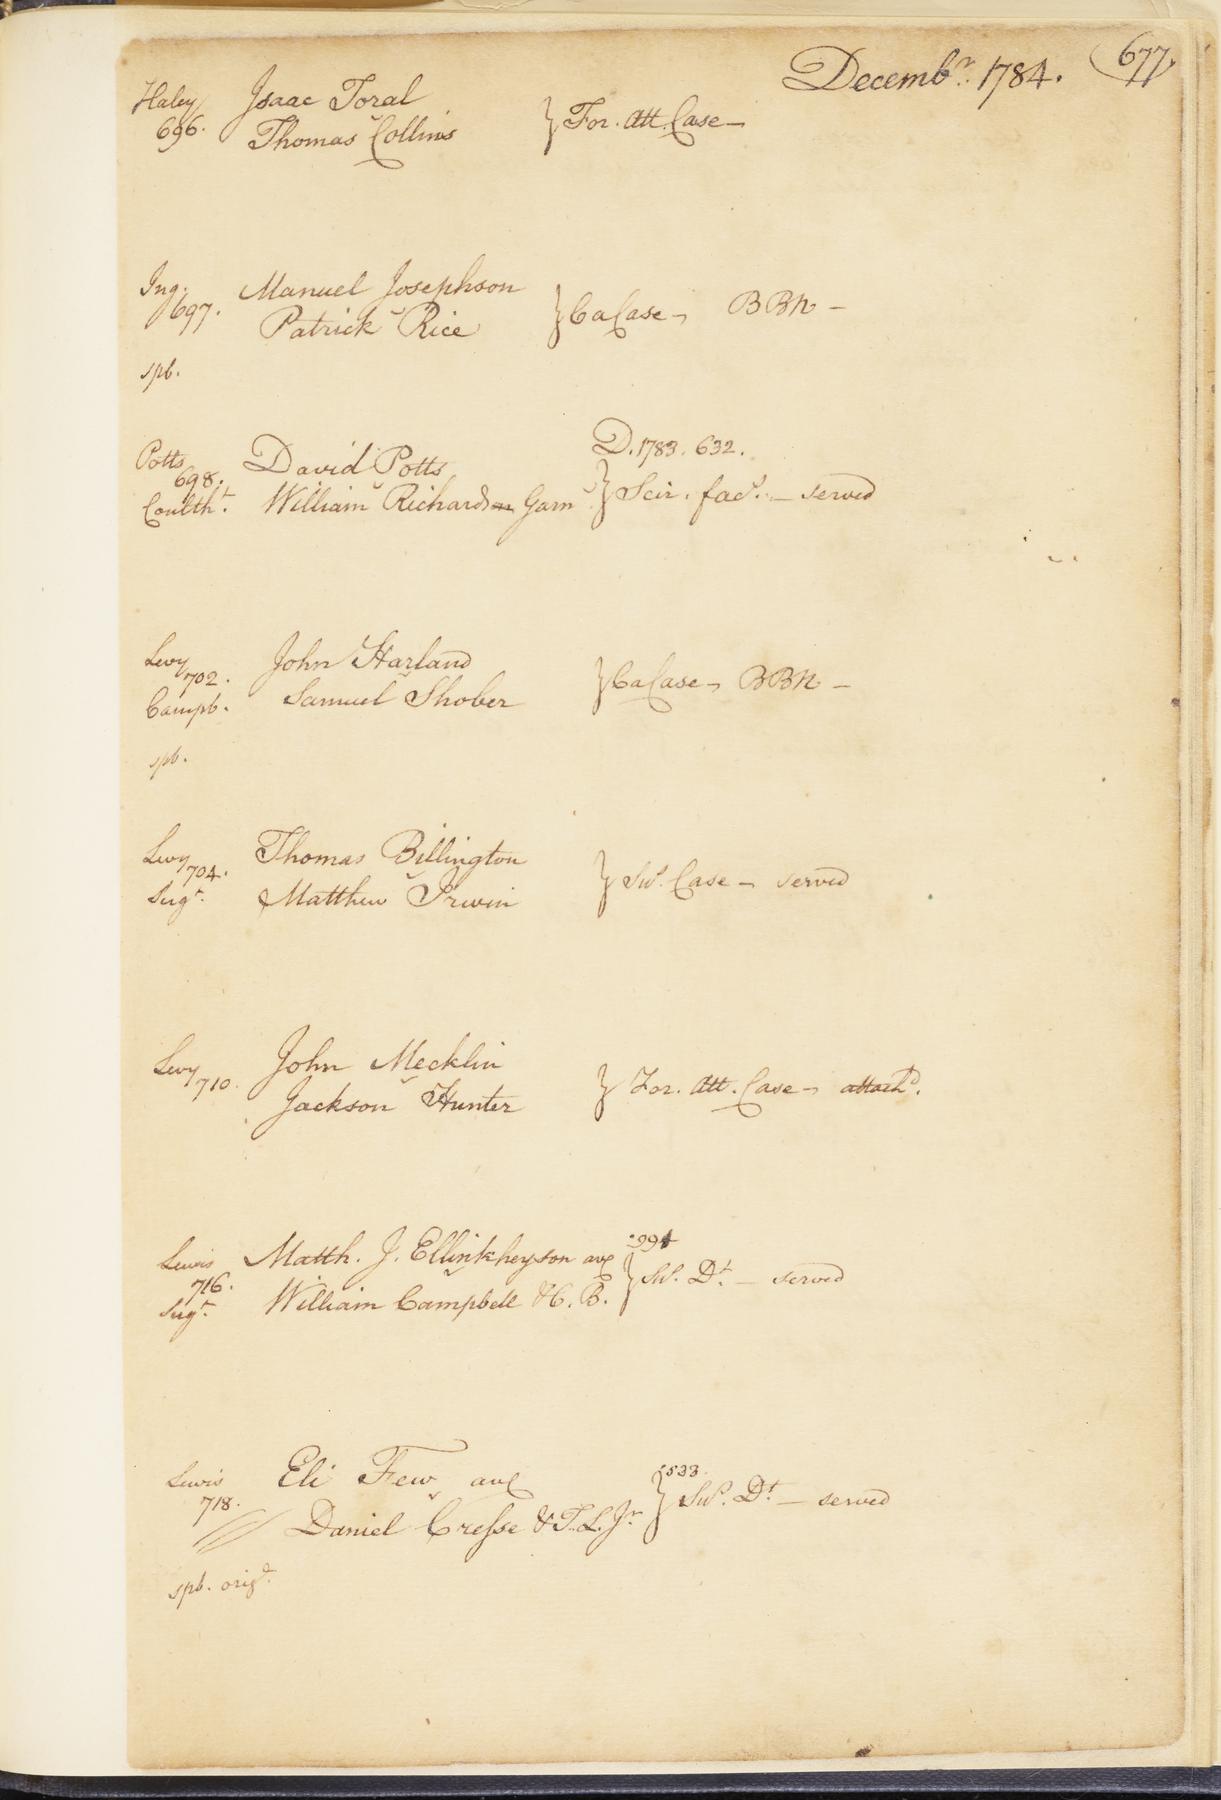 Decembr. 1784. 677.
Haley Isaac Toral
696. Thomas Collins } For. Att. Case —
Ing. Manuel Josephson
697. Patrick Rice } Ca Case — BBN —
spb.
D. 1783. 632.
Potts David Potts
698. } Scir. facs. — served
Coultht. William Richardson Garn
Levy John Harland
702. } Ca Case — BBN —
Campb. Samuel Shober
spb.
Levy Thomas Billington
704. } Sus. Case — served
Sergt. Matthew Irwin
Levy John Mecklin
710. Jackson Hunter } For. Att. Case — attachd.
994
Lewis Matth. J. Ellinkheyson
716. } Sus. Dt. — served
Sergt. William Campbell & C. B.
533.
Lewis Eli Few
718. Daniel Cresse & T. L. Jr. } Sus. Dt. — served
spb. origl.